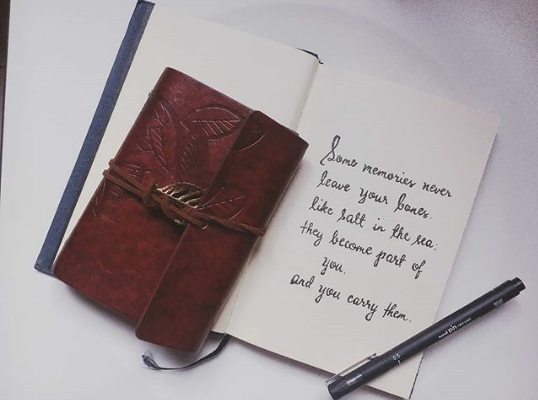 Some memories never
leave your bones.
like salt in the sea;
they become part of
you.
and you carry them.
uni pin
0.5